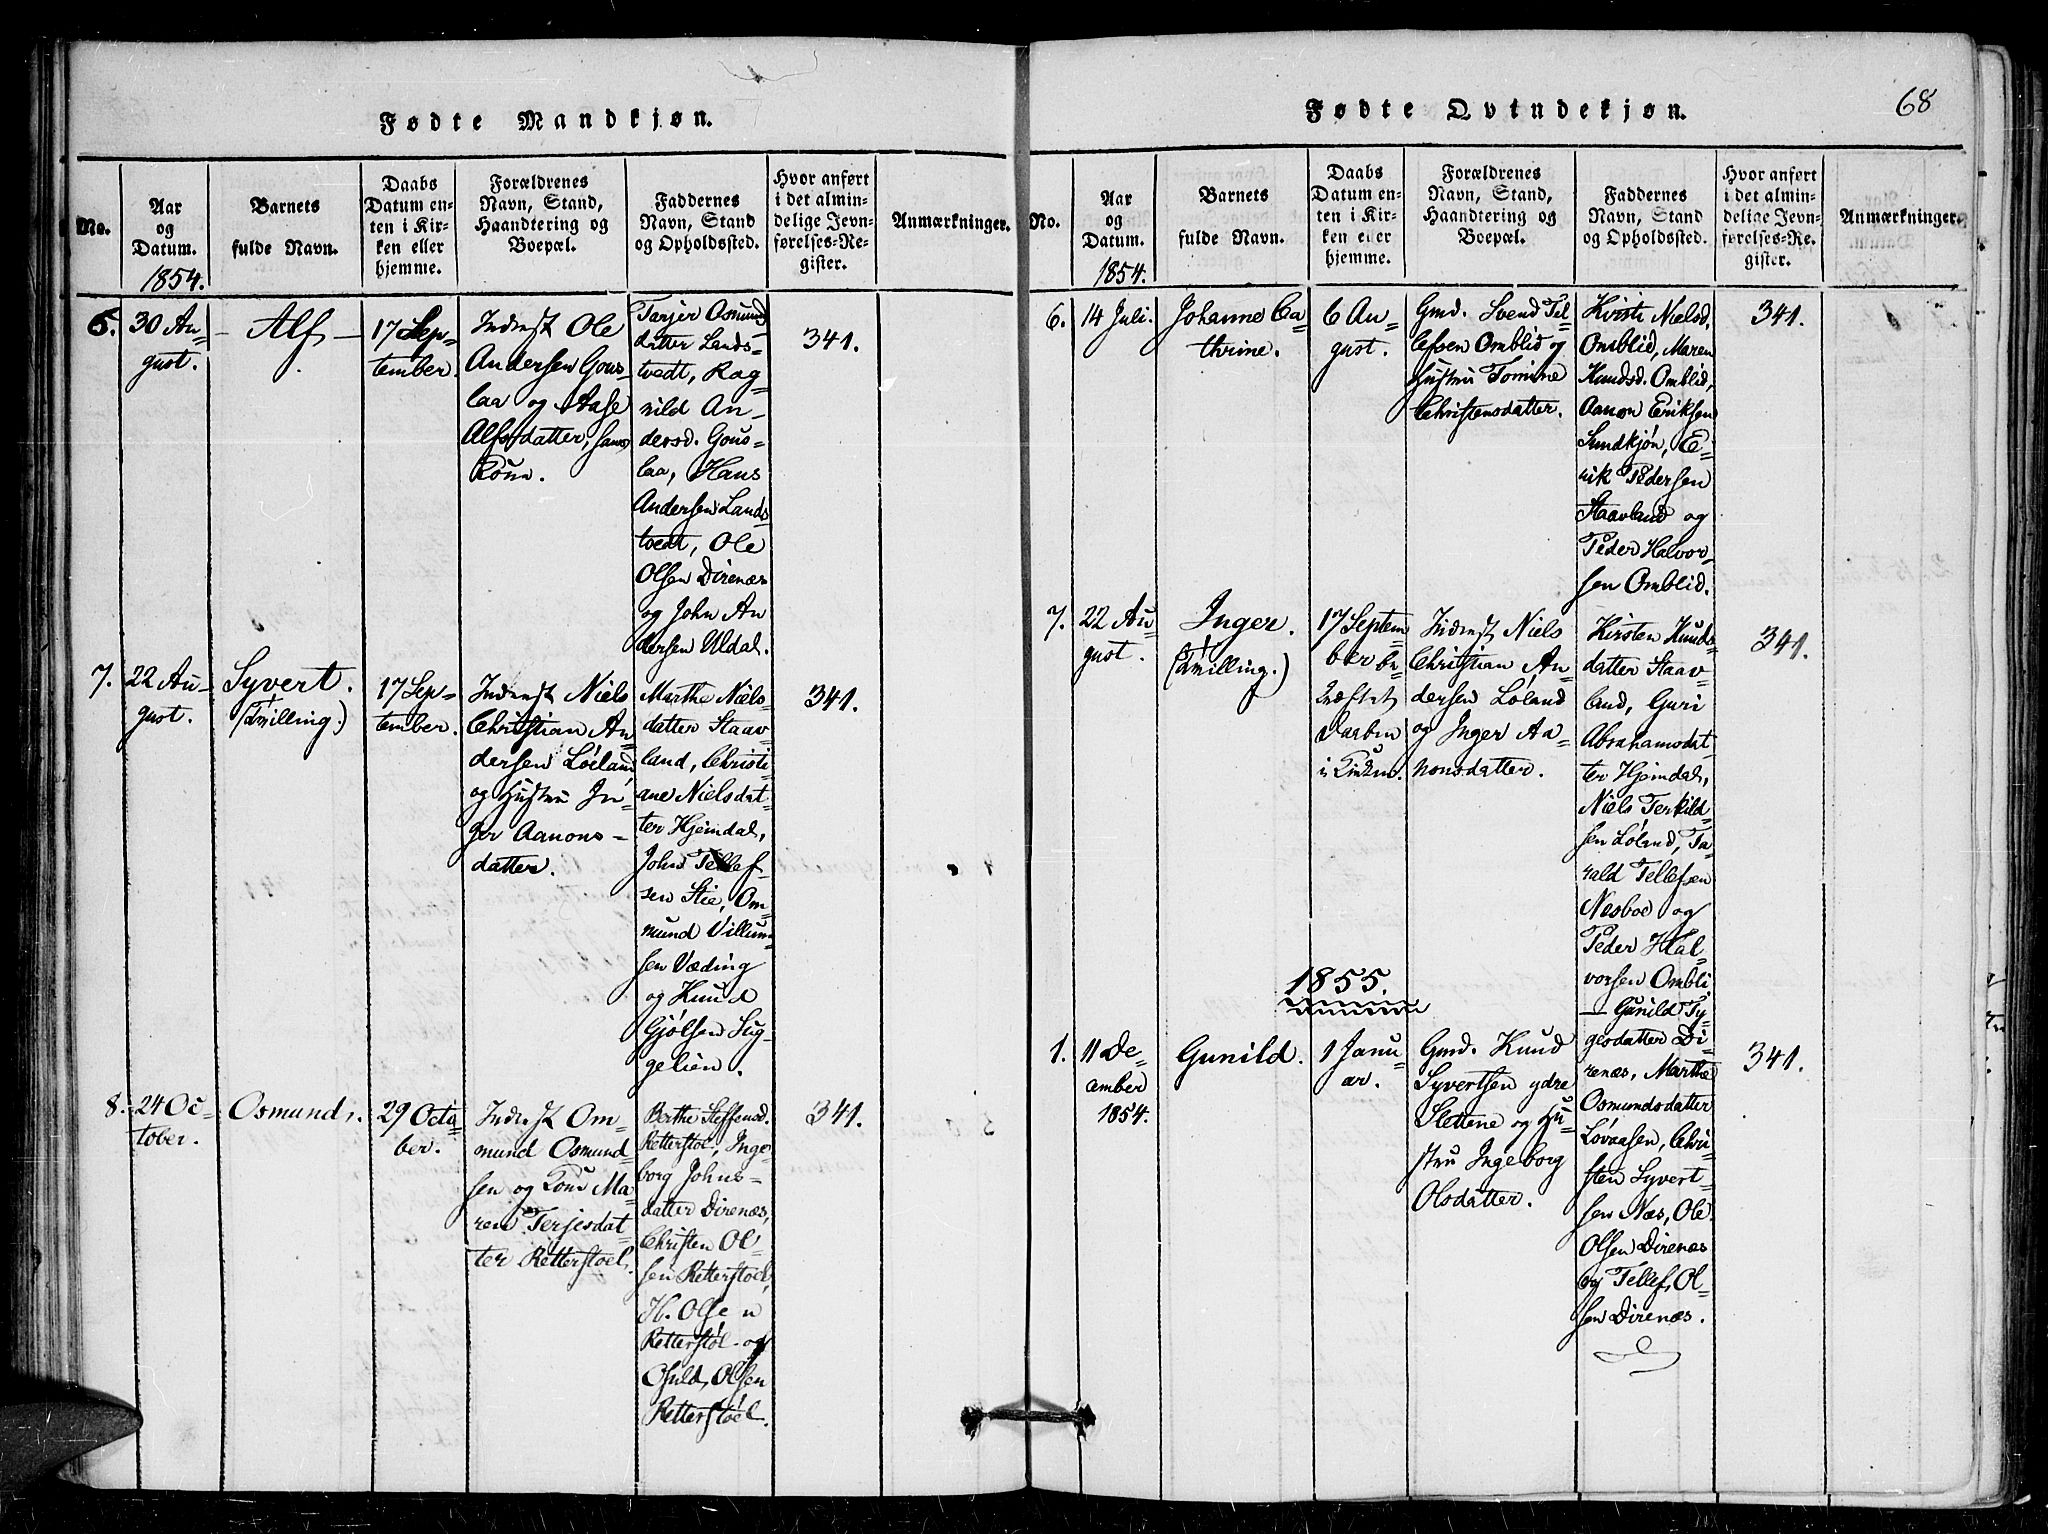 Fødte Mandkjøn.
No.
Aar
og
Datum.
1854.
Barnets
fulde Navn.
Daabs
Datum en-
ten i Kir-
ken eller
hjemme.
Forældrenes
Navn, Stand,
Haandtering og
Boepæl.
Faddernes
Navn, Stand
og Opholdssted.
Hvor anført
i det almin-
delige Jevn-
førelses-Re-
gister.
Anmærkninger.
6.
30 Au-
gust.
Alf
17 Sep-
tember.
Inderst Ole
Andersen Gous-
laa og Aase
Alfsdatter, hans
Kone.
Tarjer Osmund
datter Lands-
tvedt, Rag-
nild An-
dersd. Gous-
laa, Hans
Andersen Lands-
tvedt, Ole
Olsen Direnæs
og John An
dersen Uldal.
341.
7.
22 Au-
gust.
Syvert.
(Tvilling.)
17 Sep-
tember.
Inderst Niels
Christian An-
dersen Løeland
og Hustru In-
ger Aanons-
datter.
Marthe Niels-
datter Staav-
land, Christi-
ane Nielsdat-
ter Hjemdal,
John Tellef-
sen Stie, Om-
mund Villum-
sen Væding
og Knud
Gjølsen Sug-
gelien.
341.
8.
24 Oc-
tober.
Osmund.
29 Octo-
ber.
Inderst Om-
mund Osmund-
sen og Kone Ma-
ren Terjesdat
ter Retterstoel.
Berthe Steffensd.
Retterstøl, Inge-
borg Johns-
datter Direnæs,
Christen Ol-
sen Retterstoel,
H. Olsen
Retterstøl og
Osuld Olsen
Retterstoel.
341.
68
Fødte Qvindekjøn.
No.
Aar
og
Datum.
1854.
Barnets
fulde Navn.
Daabs
Datum en-
ten i Kir-
ken eller
hjemme.
Forældrenes
Navn, Stand,
Haandtering og
Boepæl.
Faddernes
Navn, Stand
og Opholdssted.
Hvor anført
i det almin-
delige Jevn-
førelses-Re-
gister.
Anmærkninger.
6.
14 Juli.
Johanne Ca-
thrine.
6 Au-
gust.
Gmd. Svend Tel-
lefsen Omblid og
Hustru Tomine
Christensdatter.
Kirsti Nielsd.
Omblid, Maren
Knudsd. Omblid,
Aanon Eriksen
Sundkjøn, E-
rik Pedersen
Staavland og
Peder Halvor-
sen Omblid.
341.
7.
22 Au-
gust.
Inger.
(Tvilling.)
17 Septem
ber be
kræftet
Daaben
i Kirken.
Inderst Niels
Christian An-
dersen Løland
og Inger Aa-
nonsdatter.
Kirsten Knuds-
datter Staav-
land, Guri
Abrahamsdat
ter Hjemdal,
Niels Terkild-
sen Løland, Ta-
rald Tellefsen
Nesboe og
Peder Hal-
vorsen Ombli
341.
1855.
1.
11 De-
cember
1854.
Gunild.
1 Janu-
ar.
Gmd. Knud
Syvertsen ydre
Slettene og Hu-
stru Ingeborg
Olsdatter.
Gunild Ty-
gesdatter Di-
renæs, Marthe
Osmundsdatter
Løvaasen, Chri-
sten Syvert-
sen Næs, Ole
Olsen Direnæs
og Tellef Ol-
sen Direnæs.
341.